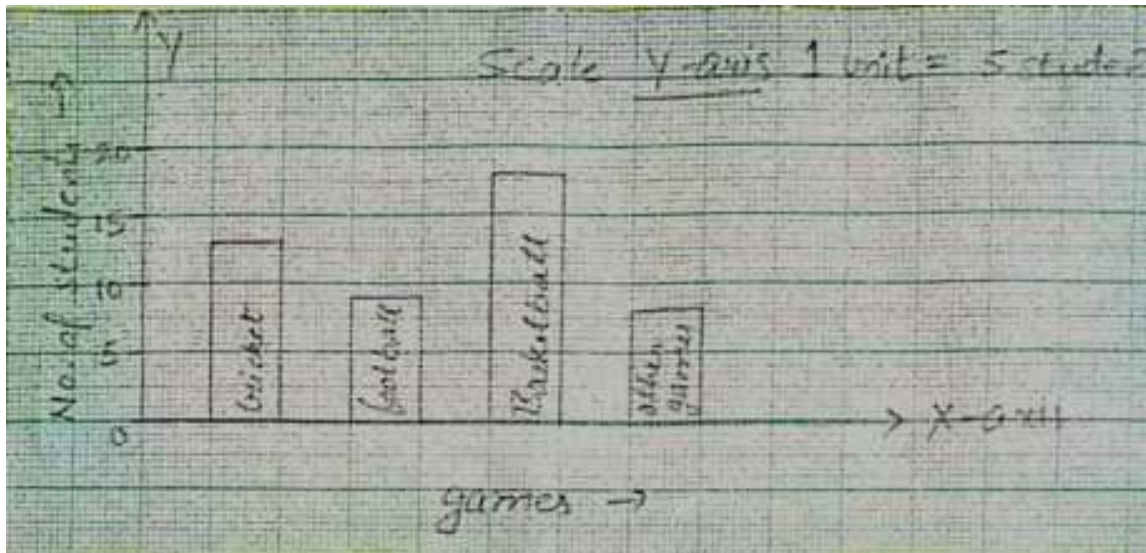 Y
Scale Y-axis 1 unit = 5 stude
No. of students →
20
15
10
5
0
Cricket
football
Basketball
other
games
X-axis
games →